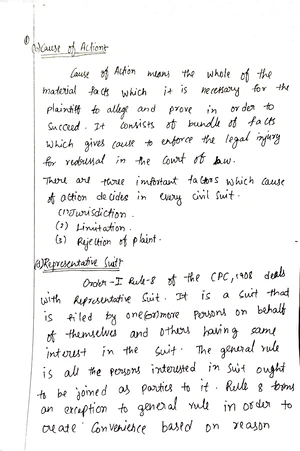 (b) Cause of Action:
Cause of Action means the whole of the
material facts which it is necessary for the
plaintiff to allege and prove in order to
succeed. It consists of bundle of facts
which gives cause to enforce the legal injury
for redressal in the court of law.
There are three important factors which cause
of action decides in every civil suit.
(1) Jurisdiction.
(2) Limitation.
(3) Rejection of plaint.
Representative Suit
Order-I Rule-8 of the CPC, 1908 deals
with Representative Suit. It is a suit that
is filed by one (or) more persons on behalf
of themselves and others having same
interest in the suit. The general rule
is all the persons interested in suit ought
to be joined as parties to it. Rule 8 forms
an exception to general rule in order to
create convenience based on reason